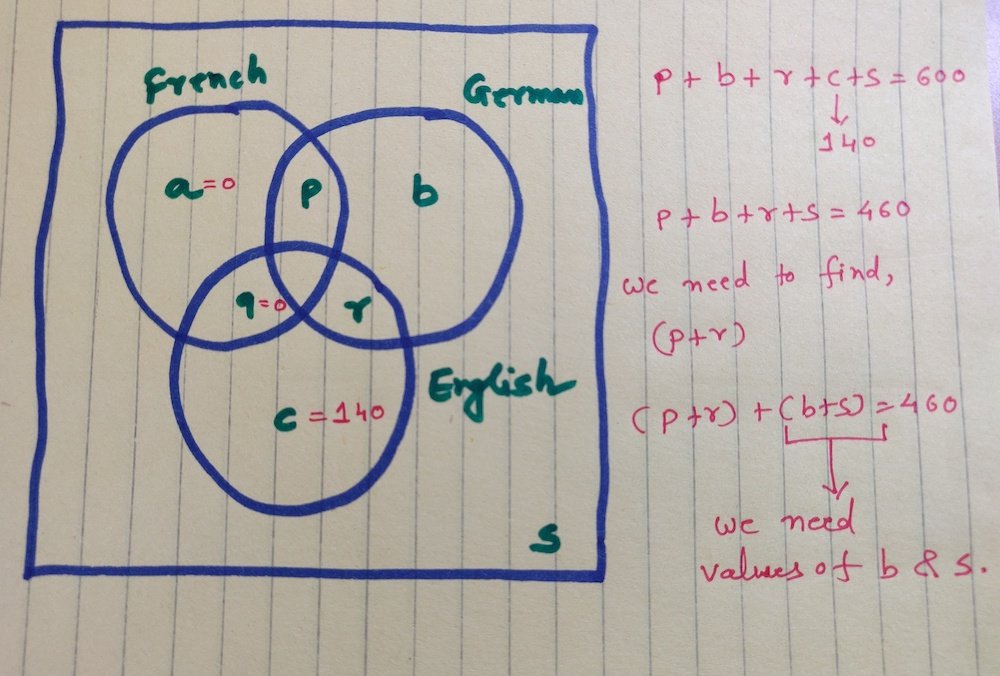 French
German
a=0
p
b
q=0
r
English
c=140
s
p+b+r+c+s=600
↓
140
p+b+r+s=460
we need to find,
(p+r)
(p+r)+(b+s)=460
we need
values of b & s.